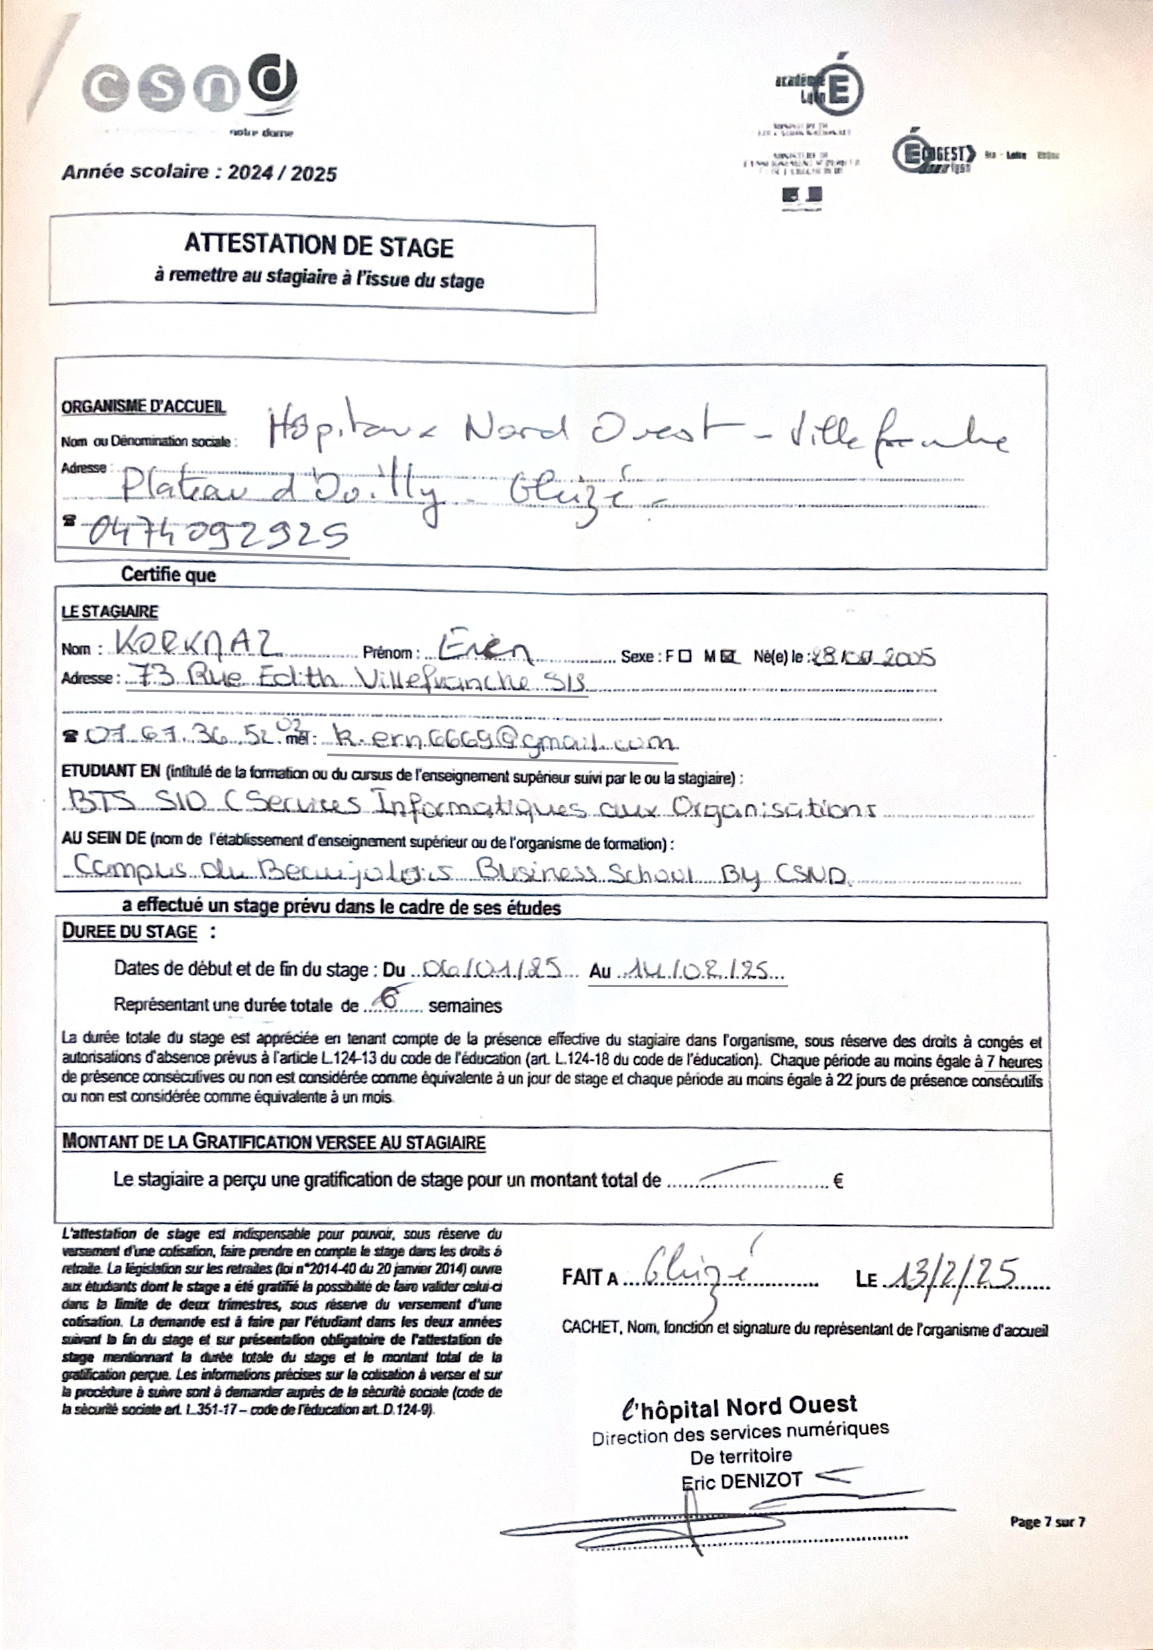 csnd
notre dame
académie
Lyon
ECOGEST
lyon
Année scolaire : 2024 / 2025
ATTESTATION DE STAGE
à remettre au stagiaire à l'issue du stage
ORGANISME D'ACCUEIL
Nom ou Dénomination sociale : Hôpitaux Nord Ouest - Villefranche
Adresse : Plateau d'Ouilly - Gleizé -
☎ 0474092925
Certifie que
LE STAGIAIRE
Nom : KORKMAZ Prénom : Eren Sexe : F ☐ M ☒ Né(e) le : 2005
Adresse : 73 Rue Edith Villefranche S/S
☎ 07.67.36.52.02 mél : k.ern.6669@gmail.com
ETUDIANT EN (intitulé de la formation ou du cursus de l'enseignement supérieur suivi par le ou la stagiaire) :
BTS SIO (Services Informatiques aux Organisations
AU SEIN DE (nom de l'établissement d'enseignement supérieur ou de l'organisme de formation) :
Campus du Beaujolais Business School By CSND
a effectué un stage prévu dans le cadre de ses études
DUREE DU STAGE :
Dates de début et de fin du stage : Du 06/01/25 Au 14/02/25
Représentant une durée totale de 6 semaines
La durée totale du stage est appréciée en tenant compte de la présence effective du stagiaire dans l'organisme, sous réserve des droits à congés et
autorisations d'absence prévus à l'article L.124-13 du code de l'éducation (art. L.124-18 du code de l'éducation). Chaque période au moins égale à 7 heures
de présence consécutives ou non est considérée comme équivalente à un jour de stage et chaque période au moins égale à 22 jours de présence consécutifs
ou non est considérée comme équivalente à un mois.
MONTANT DE LA GRATIFICATION VERSEE AU STAGIAIRE
Le stagiaire a perçu une gratification de stage pour un montant total de .......... €
L'attestation de stage est indispensable pour pouvoir, sous réserve du
versement d'une cotisation, faire prendre en compte le stage dans les droits à
retraite. La législation sur les retraites (loi n°2014-40 du 20 janvier 2014) ouvre
aux étudiants dont le stage a été gratifié la possibilité de faire valider celui-ci
dans la limite de deux trimestres, sous réserve du versement d'une
cotisation. La demande est à faire par l'étudiant dans les deux années
suivant la fin du stage et sur présentation obligatoire de l'attestation de
stage mentionnant la durée totale du stage et le montant total de la
gratification perçue. Les informations précises sur la cotisation à verser et sur
la procédure à suivre sont à demander auprès de la sécurité sociale (code de
la sécurité sociale art. L.351-17 – code de l'éducation art. D.124-9).
FAIT A Gleizé LE 13/2/25
CACHET, Nom, fonction et signature du représentant de l'organisme d'accueil
l'hôpital Nord Ouest
Direction des services numériques
De territoire
Eric DENIZOT
Page 7 sur 7